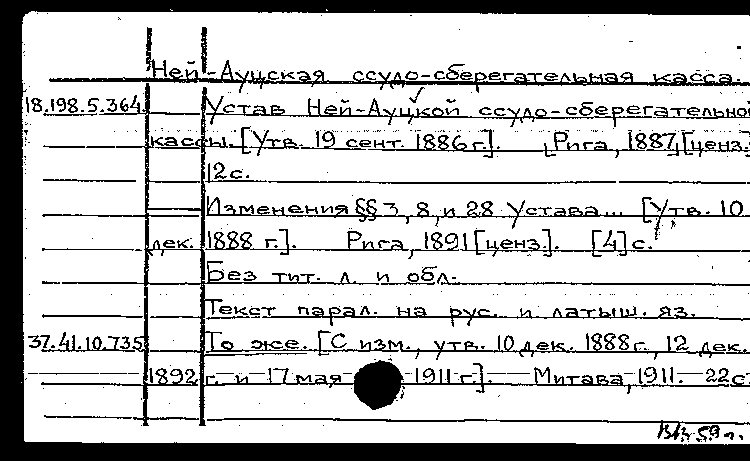 Ней-Ауцская ссудо-сберегательная касса.
18.198.5.364. Устав Ней-Ауцкой ссудо-сберегательно
кассы. [Утв. 19 сент. 1886 г.]. [Рига, 1887,] [ценз.]
12 с.
Изменения §§ 3, 8, и 28 Устава... [Утв. 10
дек. 1888 г.]. Рига, 1891 [ценз.]. [4] с.
Без тит. л. и обл.
Текст парал. на рус. и латыш. яз.
37.41.10.735 То же. [С изм., утв. 10 дек. 1888 г., 12 дек.
1892 г. и 17 мая 1911 г.]. Митава, 1911. 22 с